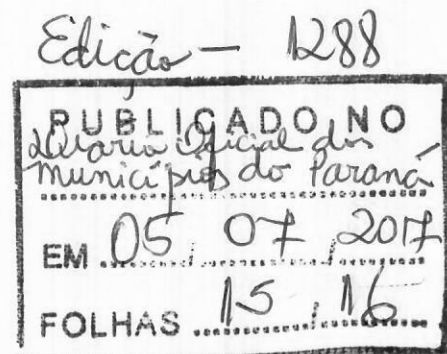 Edição - 1288
PUBLICADO NO
Diário Oficial dos
Municípios do Paraná
EM 05, 07, 2017
FOLHAS 15, 16